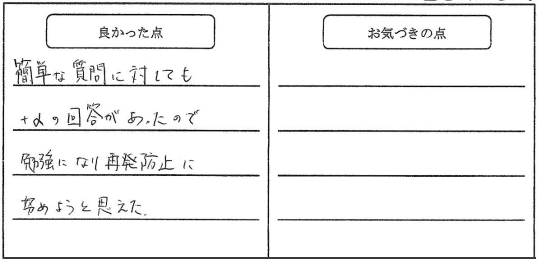 良かった点
簡単な質問に対しても
+αの回答があったので
勉強になり再発防止に
努めようと思えた.
お気づきの点